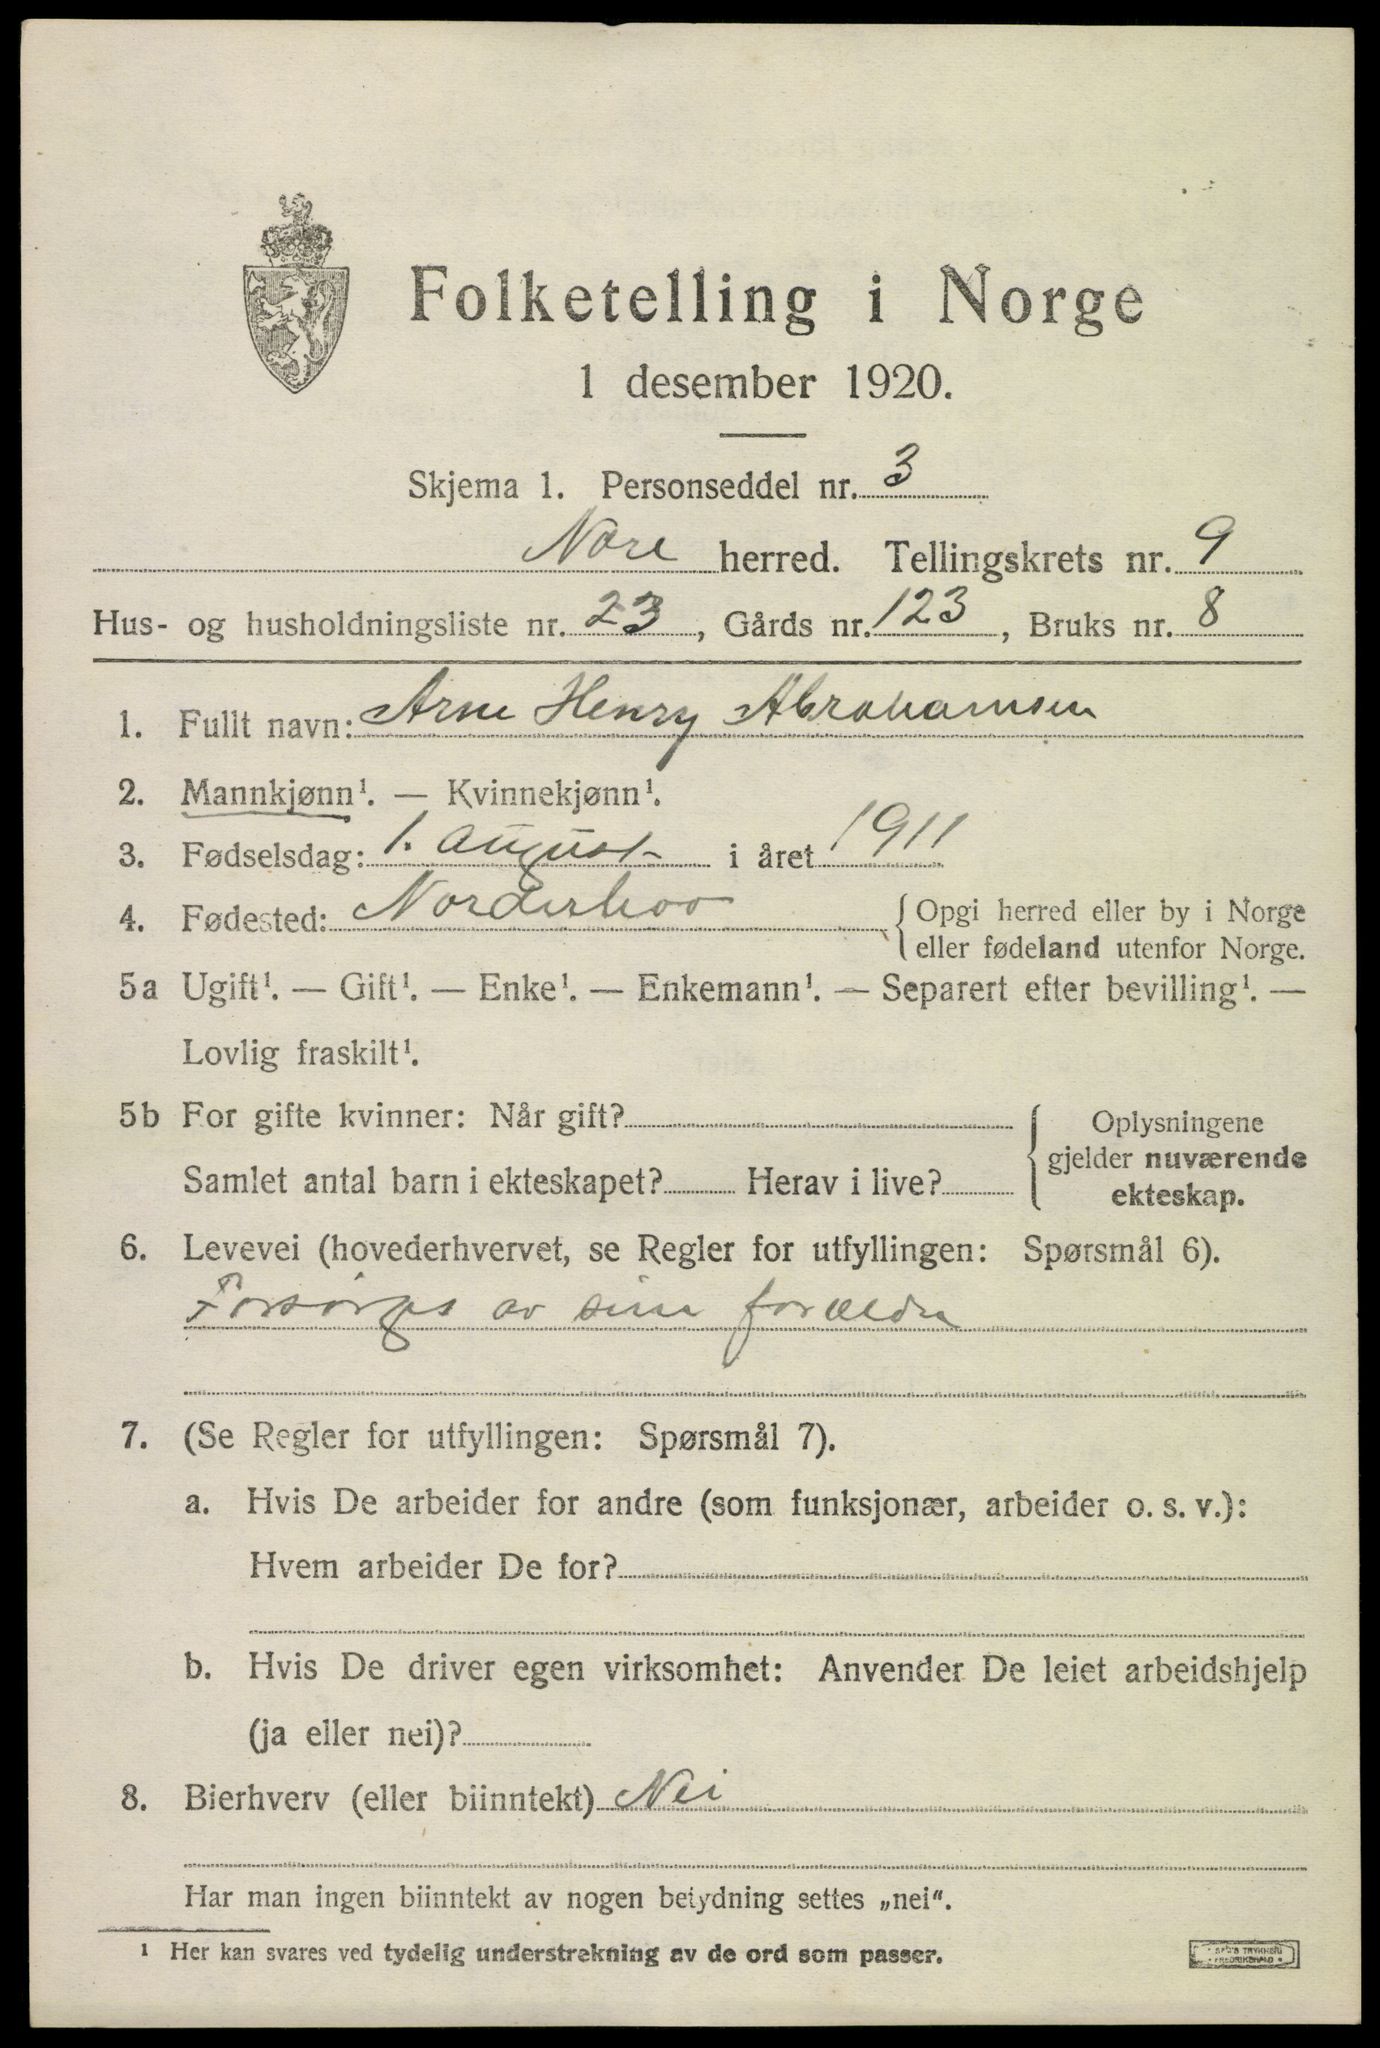 Folketelling i Norge
1 desember 1920.
Skjema 1. Personseddel nr. 3
Nore herred. Tellingskrets nr. 9
Hus- og husholdningsliste nr. 23, Gårds nr. 123, Bruks nr. 8
1. Fullt navn: Arne Henry Abrahamsen
2. Mannkjønn¹. — Kvinnekjønn¹.
3. Fødselsdag: 1. august i året 1911
4. Fødested: Norderhov { Opgi herred eller by i Norge
eller fødeland utenfor Norge.
5a Ugift¹. — Gift¹. — Enke¹. — Enkemann¹. — Separert efter bevilling¹. —
Lovlig fraskilt¹.
5b For gifte kvinner: Når gift? { Oplysningene
gjelder nuværende
Samlet antal barn i ekteskapet? Herav i live? ekteskap.
6. Levevei (hovederhvervet, se Regler for utfyllingen: Spørsmål 6).
Forsørges av sine forældre
7. (Se Regler for utfyllingen: Spørsmål 7).
a. Hvis De arbeider for andre (som funksjonær, arbeider o. s. v.):
Hvem arbeider De for?
b. Hvis De driver egen virksomhet: Anvender De leiet arbeidshjelp
(ja eller nei)?
8. Bierhverv (eller biinntekt) Nei
Har man ingen biinntekt av nogen betydning settes „nei“.
¹ Her kan svares ved tydelig understrekning av de ord som passer.
TRYKKERI
FREDRIKSHALD